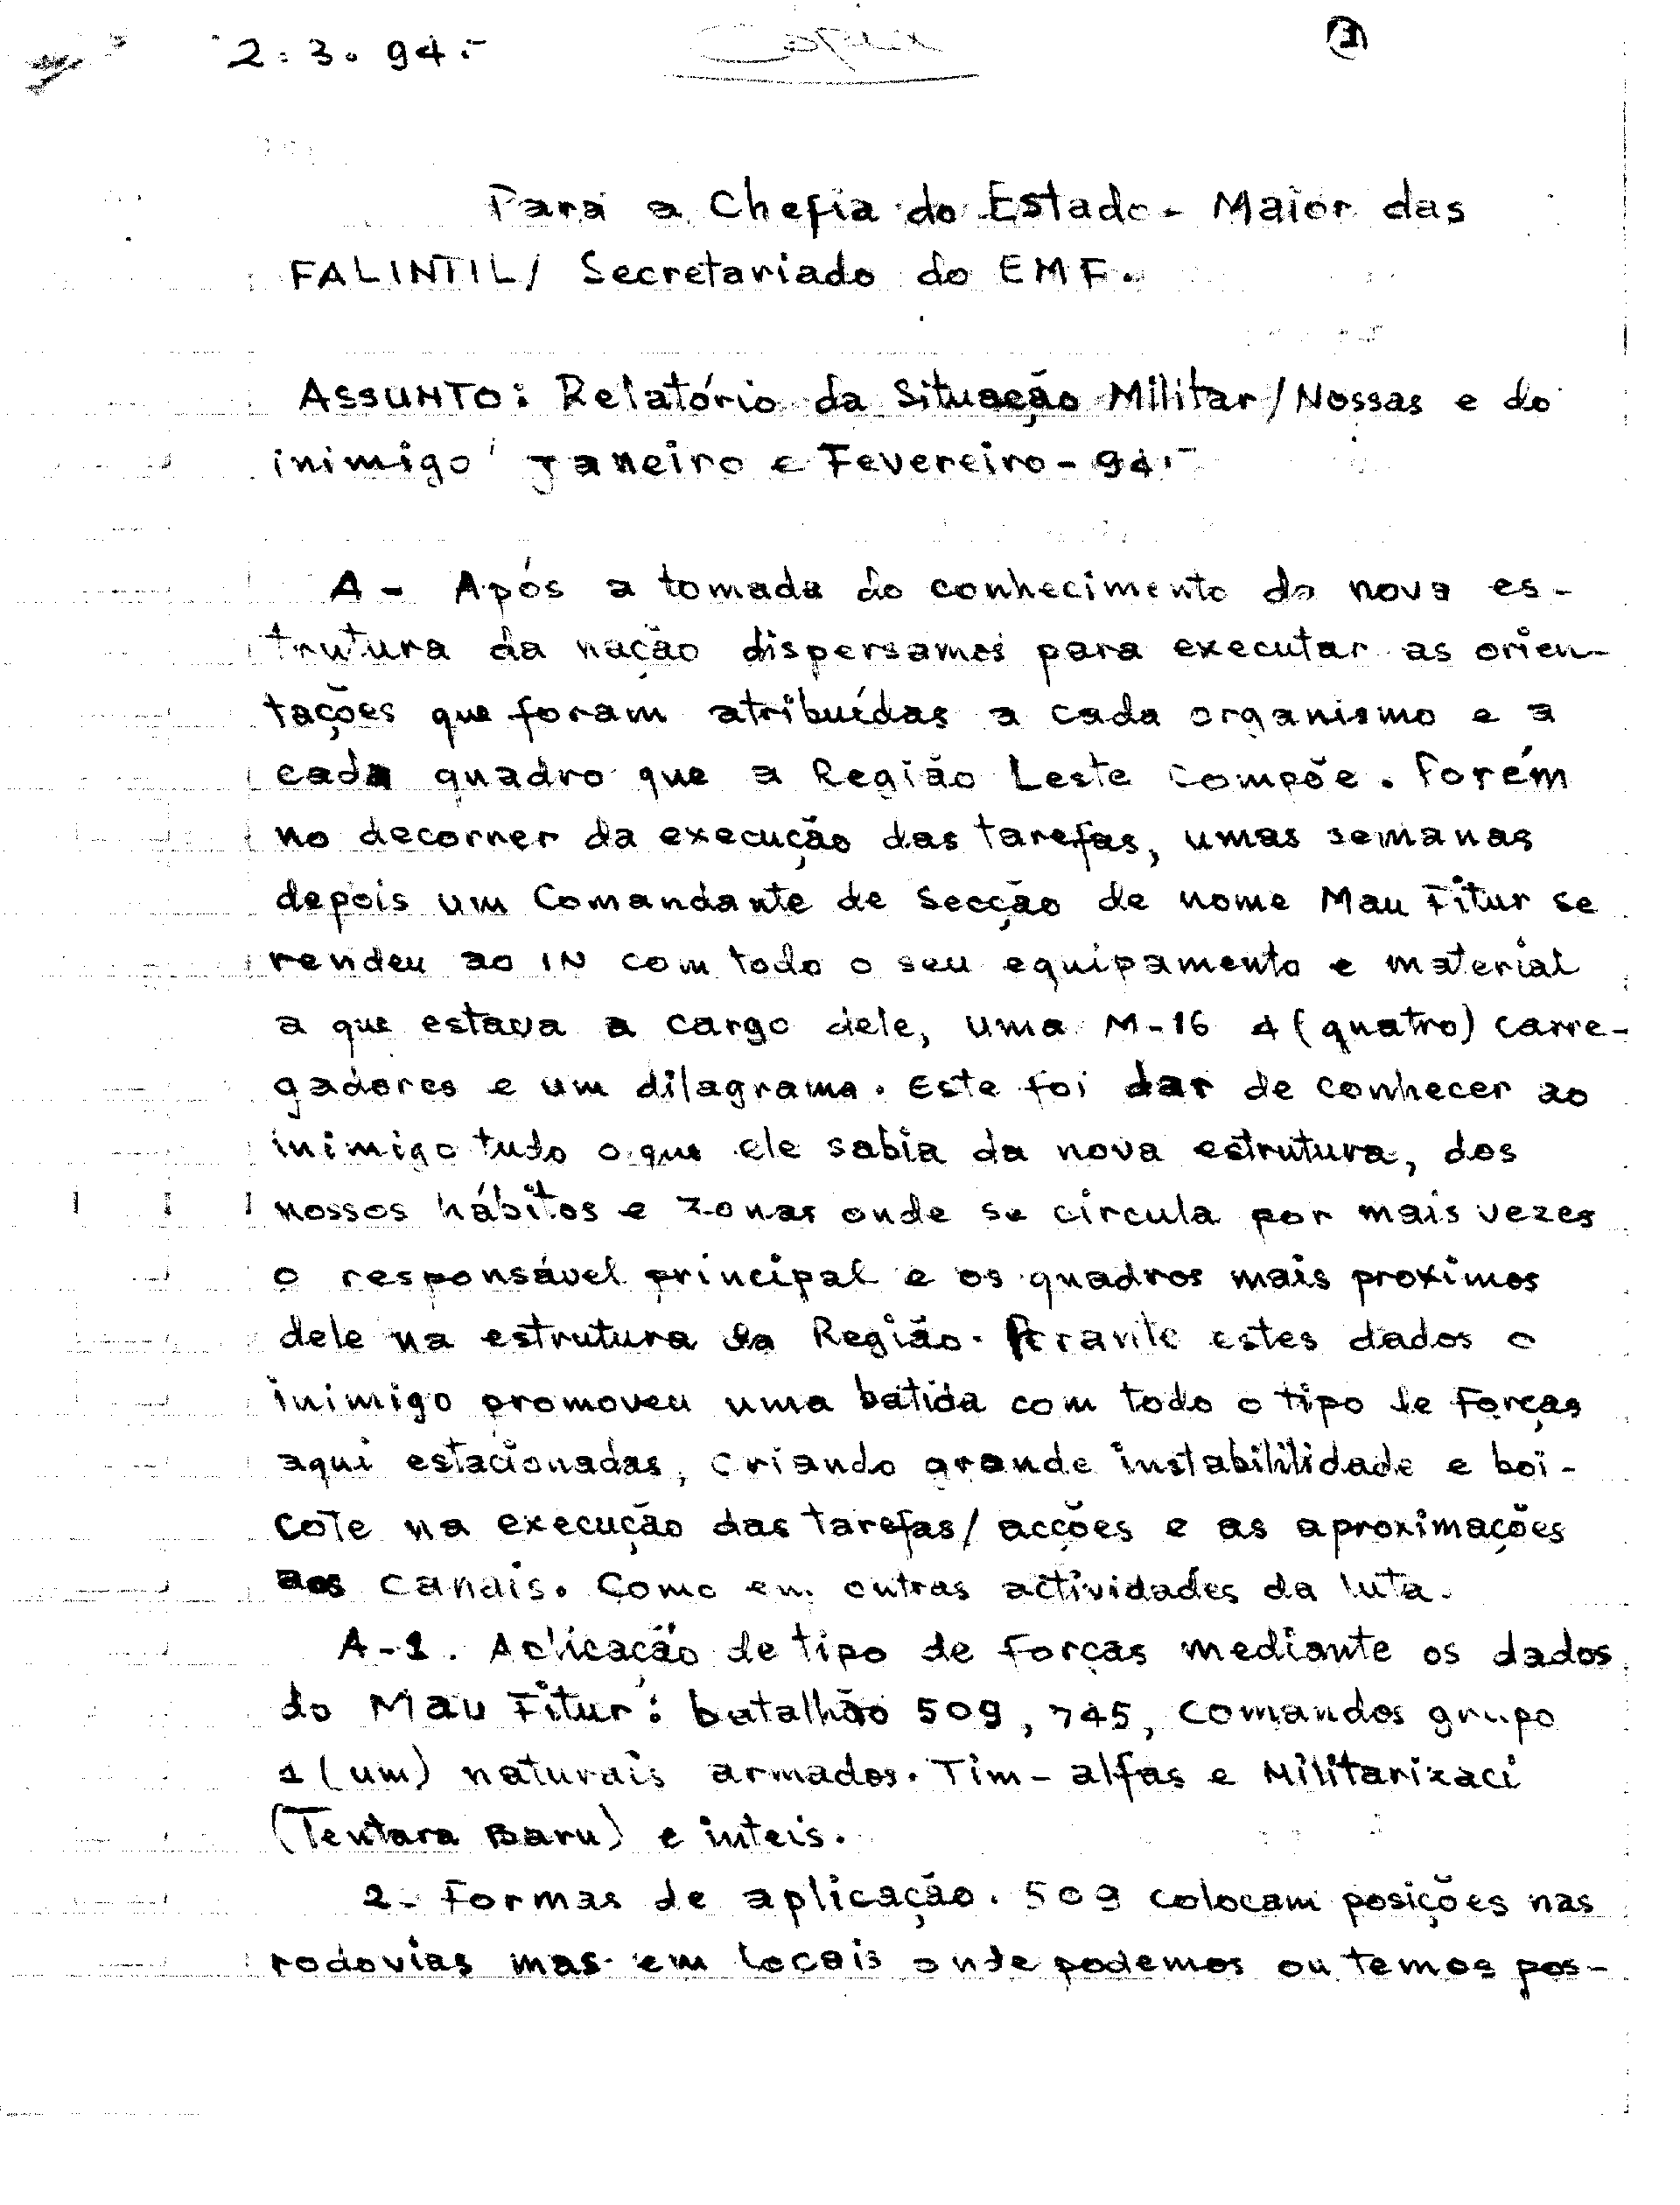 2.3.94.-
Copia
1
Para a Chefia do Estado-Maior das
FALINTIL/ Secretariado do EMF.
ASSUNTO: Relatório da Situação Militar/Nossas e do
inimigo Janeiro e Fevereiro-94.-
A- Após a tomada do conhecimento da nova es-
trutura da nação dispersamos para executar as orien-
tações que foram atribuídas a cada organismo e a
cada quadro que a Região Leste compõe. Porém
no decorrer da execução das tarefas, umas semanas
depois um Comandante de Secção de nome Mau Fitur se
rendeu ao IN com todo o seu equipamento e material
a que estava a cargo dele, uma M-16 4 (quatro) carre-
gadores e um dilagrama. Este foi dar de conhecer ao
inimigo tudo o que ele sabia da nova estrutura, dos
nossos hábitos e zonas onde se circula por mais vezes
o responsável principal e os quadros mais proximos
dele na estrutura da Região. Perante estes dados o
inimigo promoveu uma batida com todo o tipo de Forças
aqui estacionadas, criando grande instabililidade e boi-
cote na execução das tarefas/ acções e as aproximações
aos canais. Como em outras actividades da luta.
A-1. Aplicação de tipo de forças mediante os dados
do Mau Fitur: batalhão 509, 745, comandos grupo
1 (um) naturais armados. Tim-alfas e Militarizaci
(Tentara Baru) e inteis.
2- Formas de aplicação. 509 colocam posições nas
rodovias mas em locais onde podemos ou temos pos-